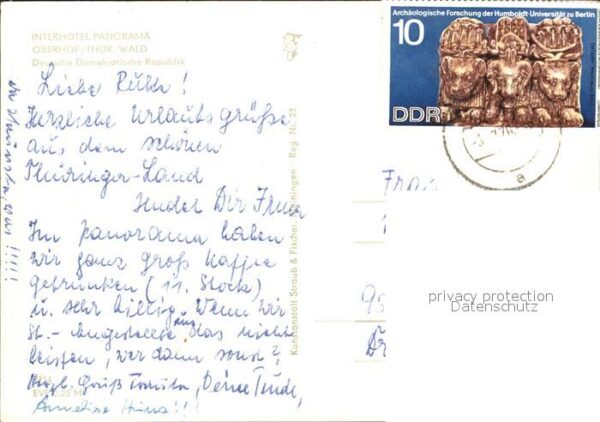 INTERHOTEL PANORAMA
OBERHOF/THÜR. WALD
Deutsche Demokratische Republik
Liebe Ruth!
Herzliche Urlaubsgrüße
aus dem schönen
Thüringer-Land
sendet Dir
Im Panorama haben
wir ganz groß Kaffee
getrunken (11. Stock)
u. sehr billig. Wenn wir
St.-Angestellte uns das nicht
leisten, wer dann sonst?
Gruß Deine
!!!
!!!!!
EVP 0,25 M
Kunstanstalt Straub & Fischer, Meiningen - Reg.-Nr. 21
Archäologische Forschung der Humboldt-Universität zu Berlin
10
DDR
a
Frau
privacy protection
Datenschutz